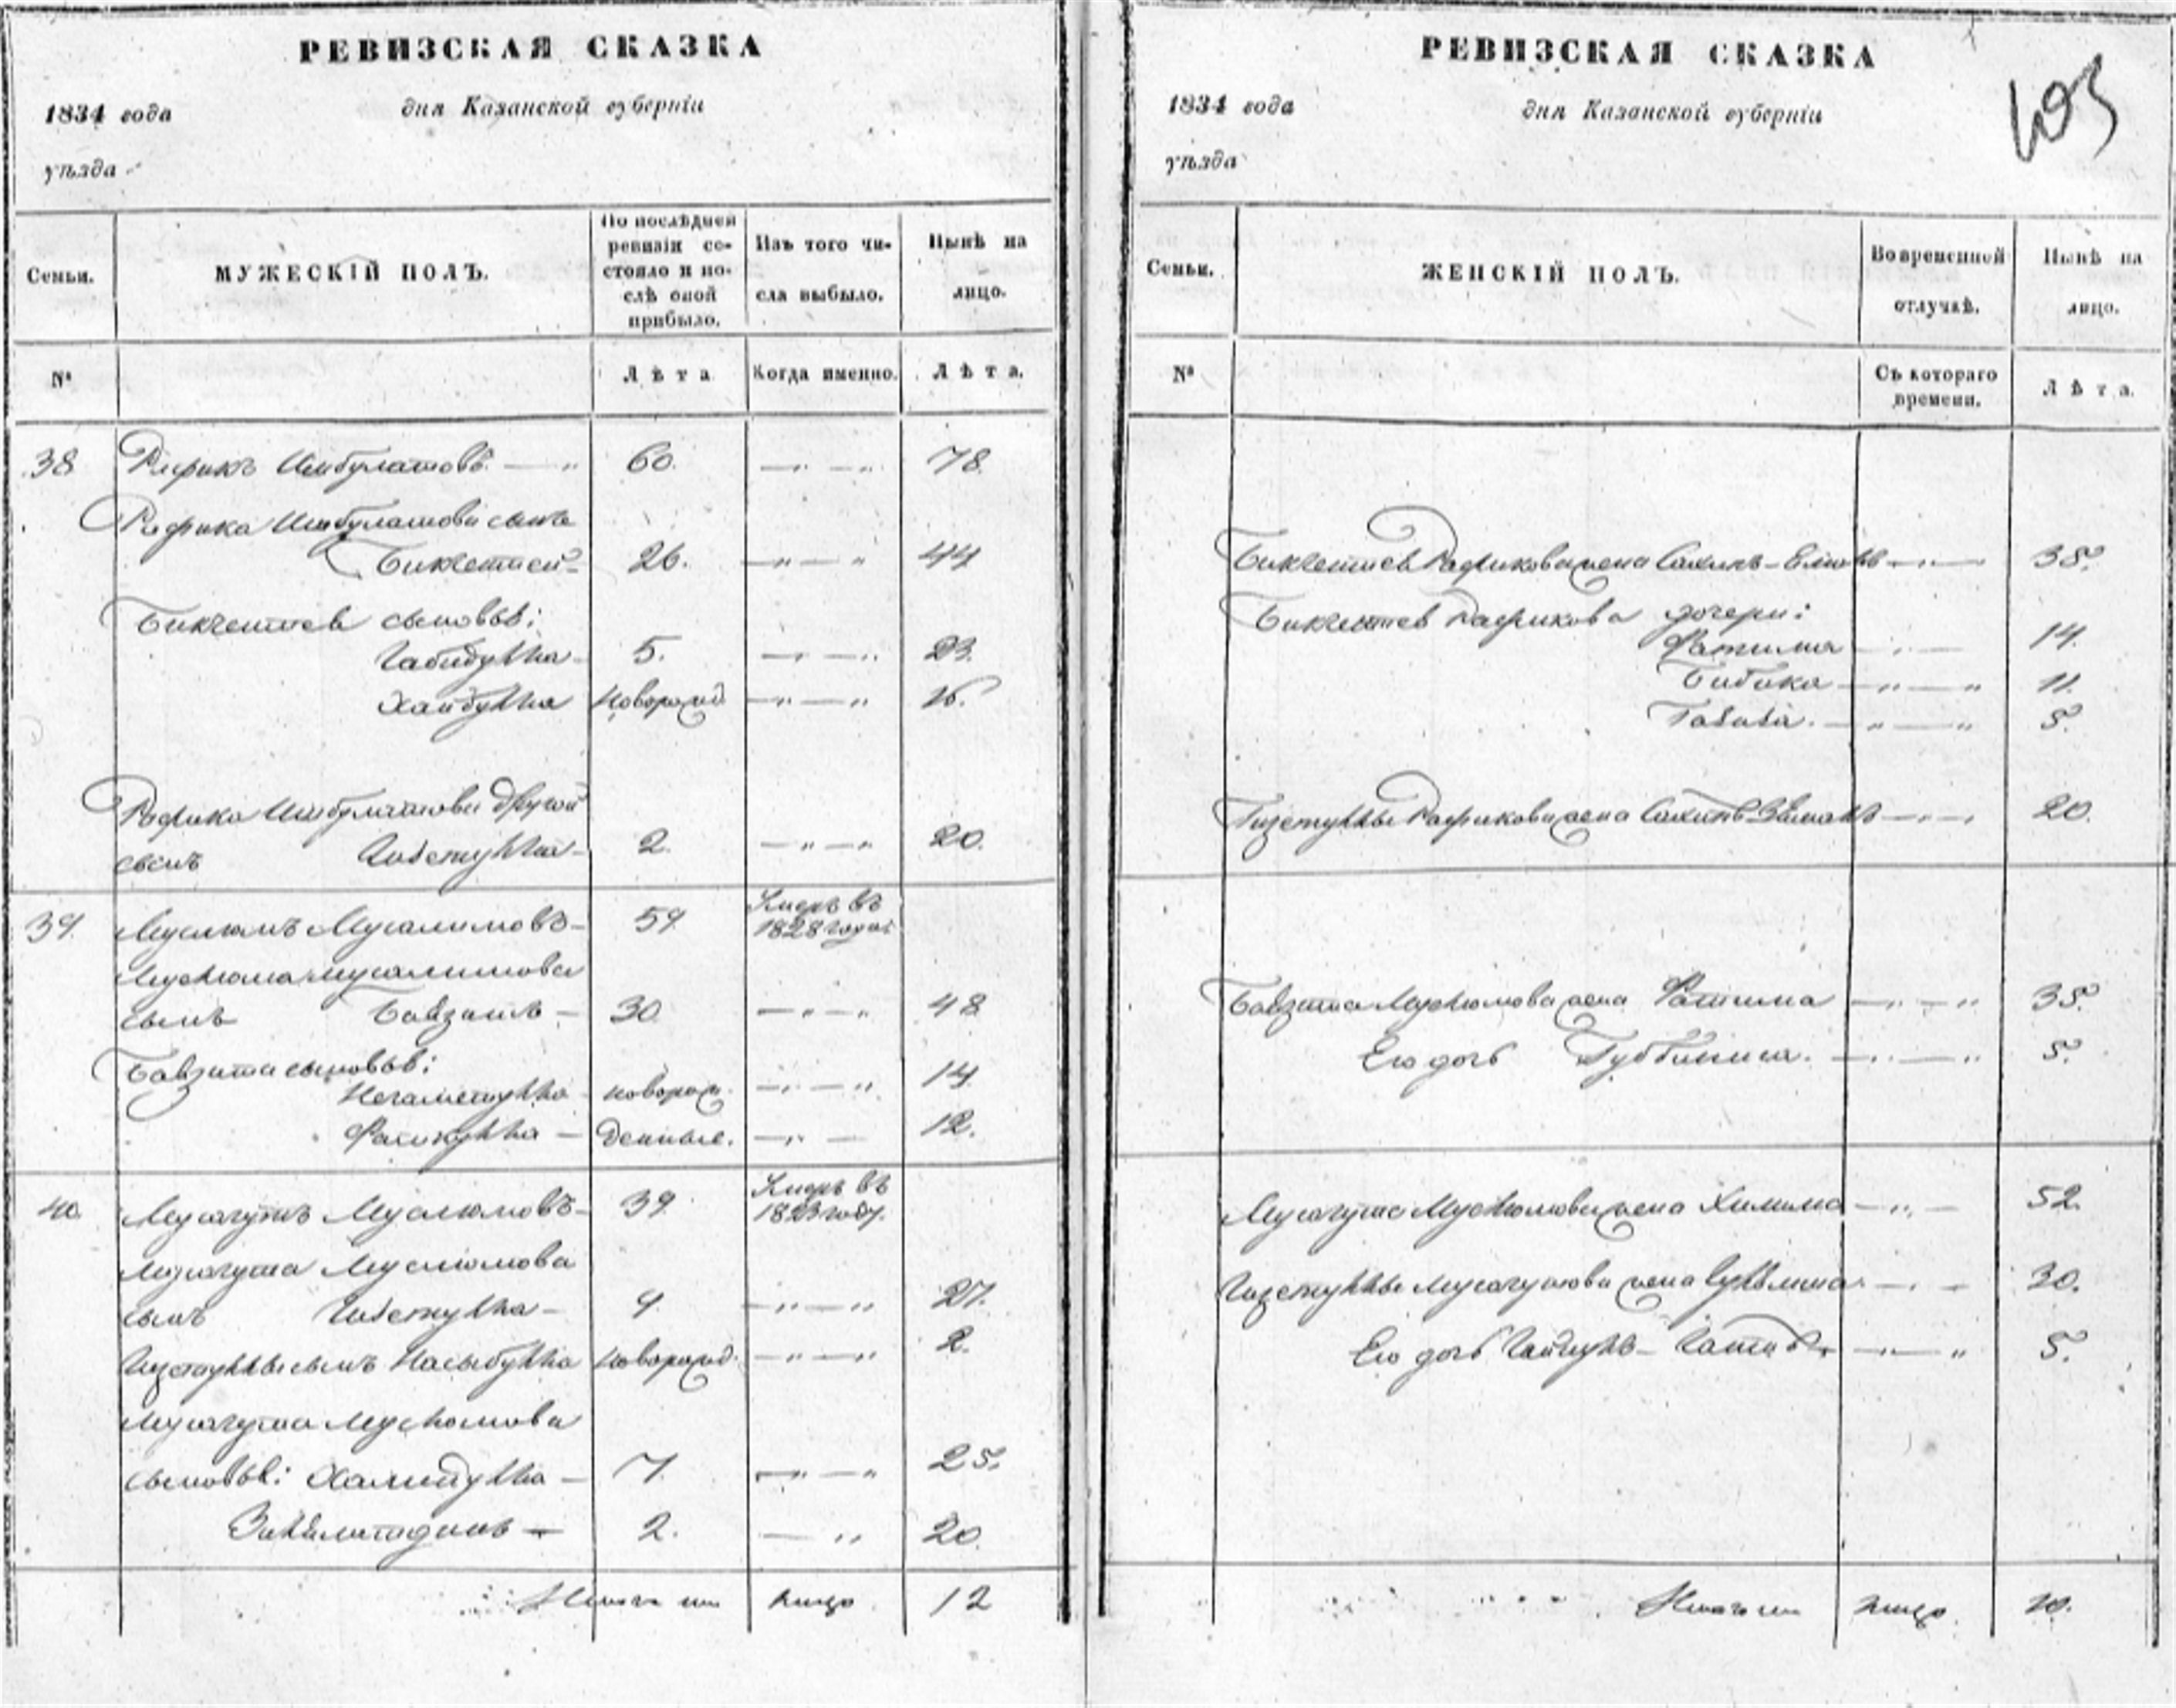 РЕВИЗСКАЯ СКАЗКА
1834 года дня Казанской губернiи
уѣзда
Семьи.
МУЖЕСКIЙ ПОЛЪ.
По послѣдней ревизiи со-
стояло и по-
слѣ оной
прибыло.
Изъ того чи-
сла выбыло.
Нынѣ на
лицо.
№
Лѣта
Когда именно.
Лѣта.
38 Рафикъ Ишбулатовъ 60. 78.
Рафика Ишбулатова сынъ
Бикчентей 26. 44
Бикчентея сыновья:
Габидулла 5. 23.
Хайбулла новорожд 16.
Рафика Ишбулатова другой
сынъ Гизетулла 2. 20.
39. Муслюмъ Мусалимовъ 59 Умеръ въ
1828 году
Муслюма Мусалимова
сынъ Баязитъ 30 48
Баязита сыновья:
Негаметулла новорож 14.
Фаткулла денные. 12.
40. Мусагутъ Муслюмовъ 39. Умеръ въ
1823 году.
Мусагута Муслюмова
сынъ Гизетулла 9. 27.
Гизетуллы сынъ Насыбулла новорожд. 2.
Мусагута Муслюмова
сыновья: Хамидулла 7. 25.
2. 20.
Итого на лицо 12
РЕВИЗСКАЯ СКАЗКА
1834 года дня Казанской губернiи
уѣзда
Семьи.
ЖЕНСКIЙ ПОЛЪ.
Во временной
отлучкѣ.
Нынѣ на
лицо.
№
Съ котораго
времени.
Лѣта.
Бикчентея Рафикова жена 38.
Бикчентея Рафикова дочери:
Фатима 14.
Бибика 11.
5.
Гизетуллы Рафикова жена 20.
Баязита Муслюмова жена Фатима 35.
Его дочь 5.
Мусагута Муслюмова жена Халима 52.
Гизетуллы Мусагутова жена 30.
Его дочь 5.
Итого на лицо 10.